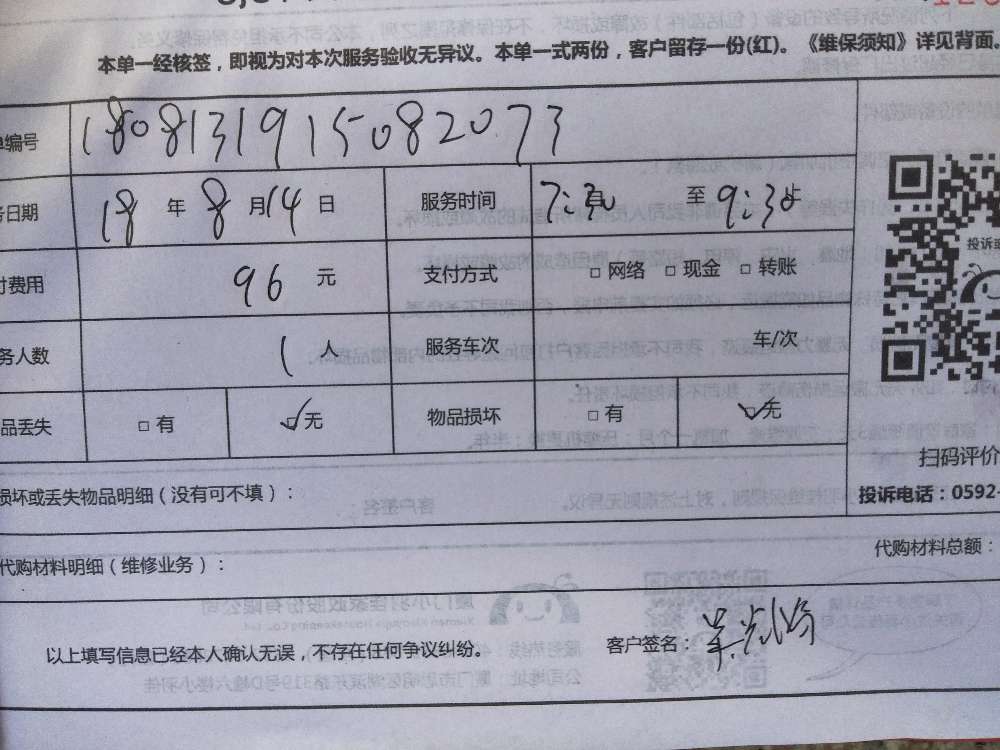 本单一经核签，即视为对本次服务验收无异议。本单一式两份，客户留存一份(红)。《维保须知》详见背面。
单编号 180813191508 2073
务日期 18 年 8 月 14 日 服务时间 7:30 至 9:30
付费用 96 元 支付方式 □ 网络 □ 现金 □ 转账
务人数 1 人 服务车次 车/次
品丢失 □ 有 ☑ 无 物品损坏 □ 有 ☑ 无
扫码评价
损坏或丢失物品明细（没有可不填）：
投诉电话：0592-
代购材料明细（维修业务）：
代购材料总额：
以上填写信息已经本人确认无误，不存在任何争议纠纷。
客户签名：